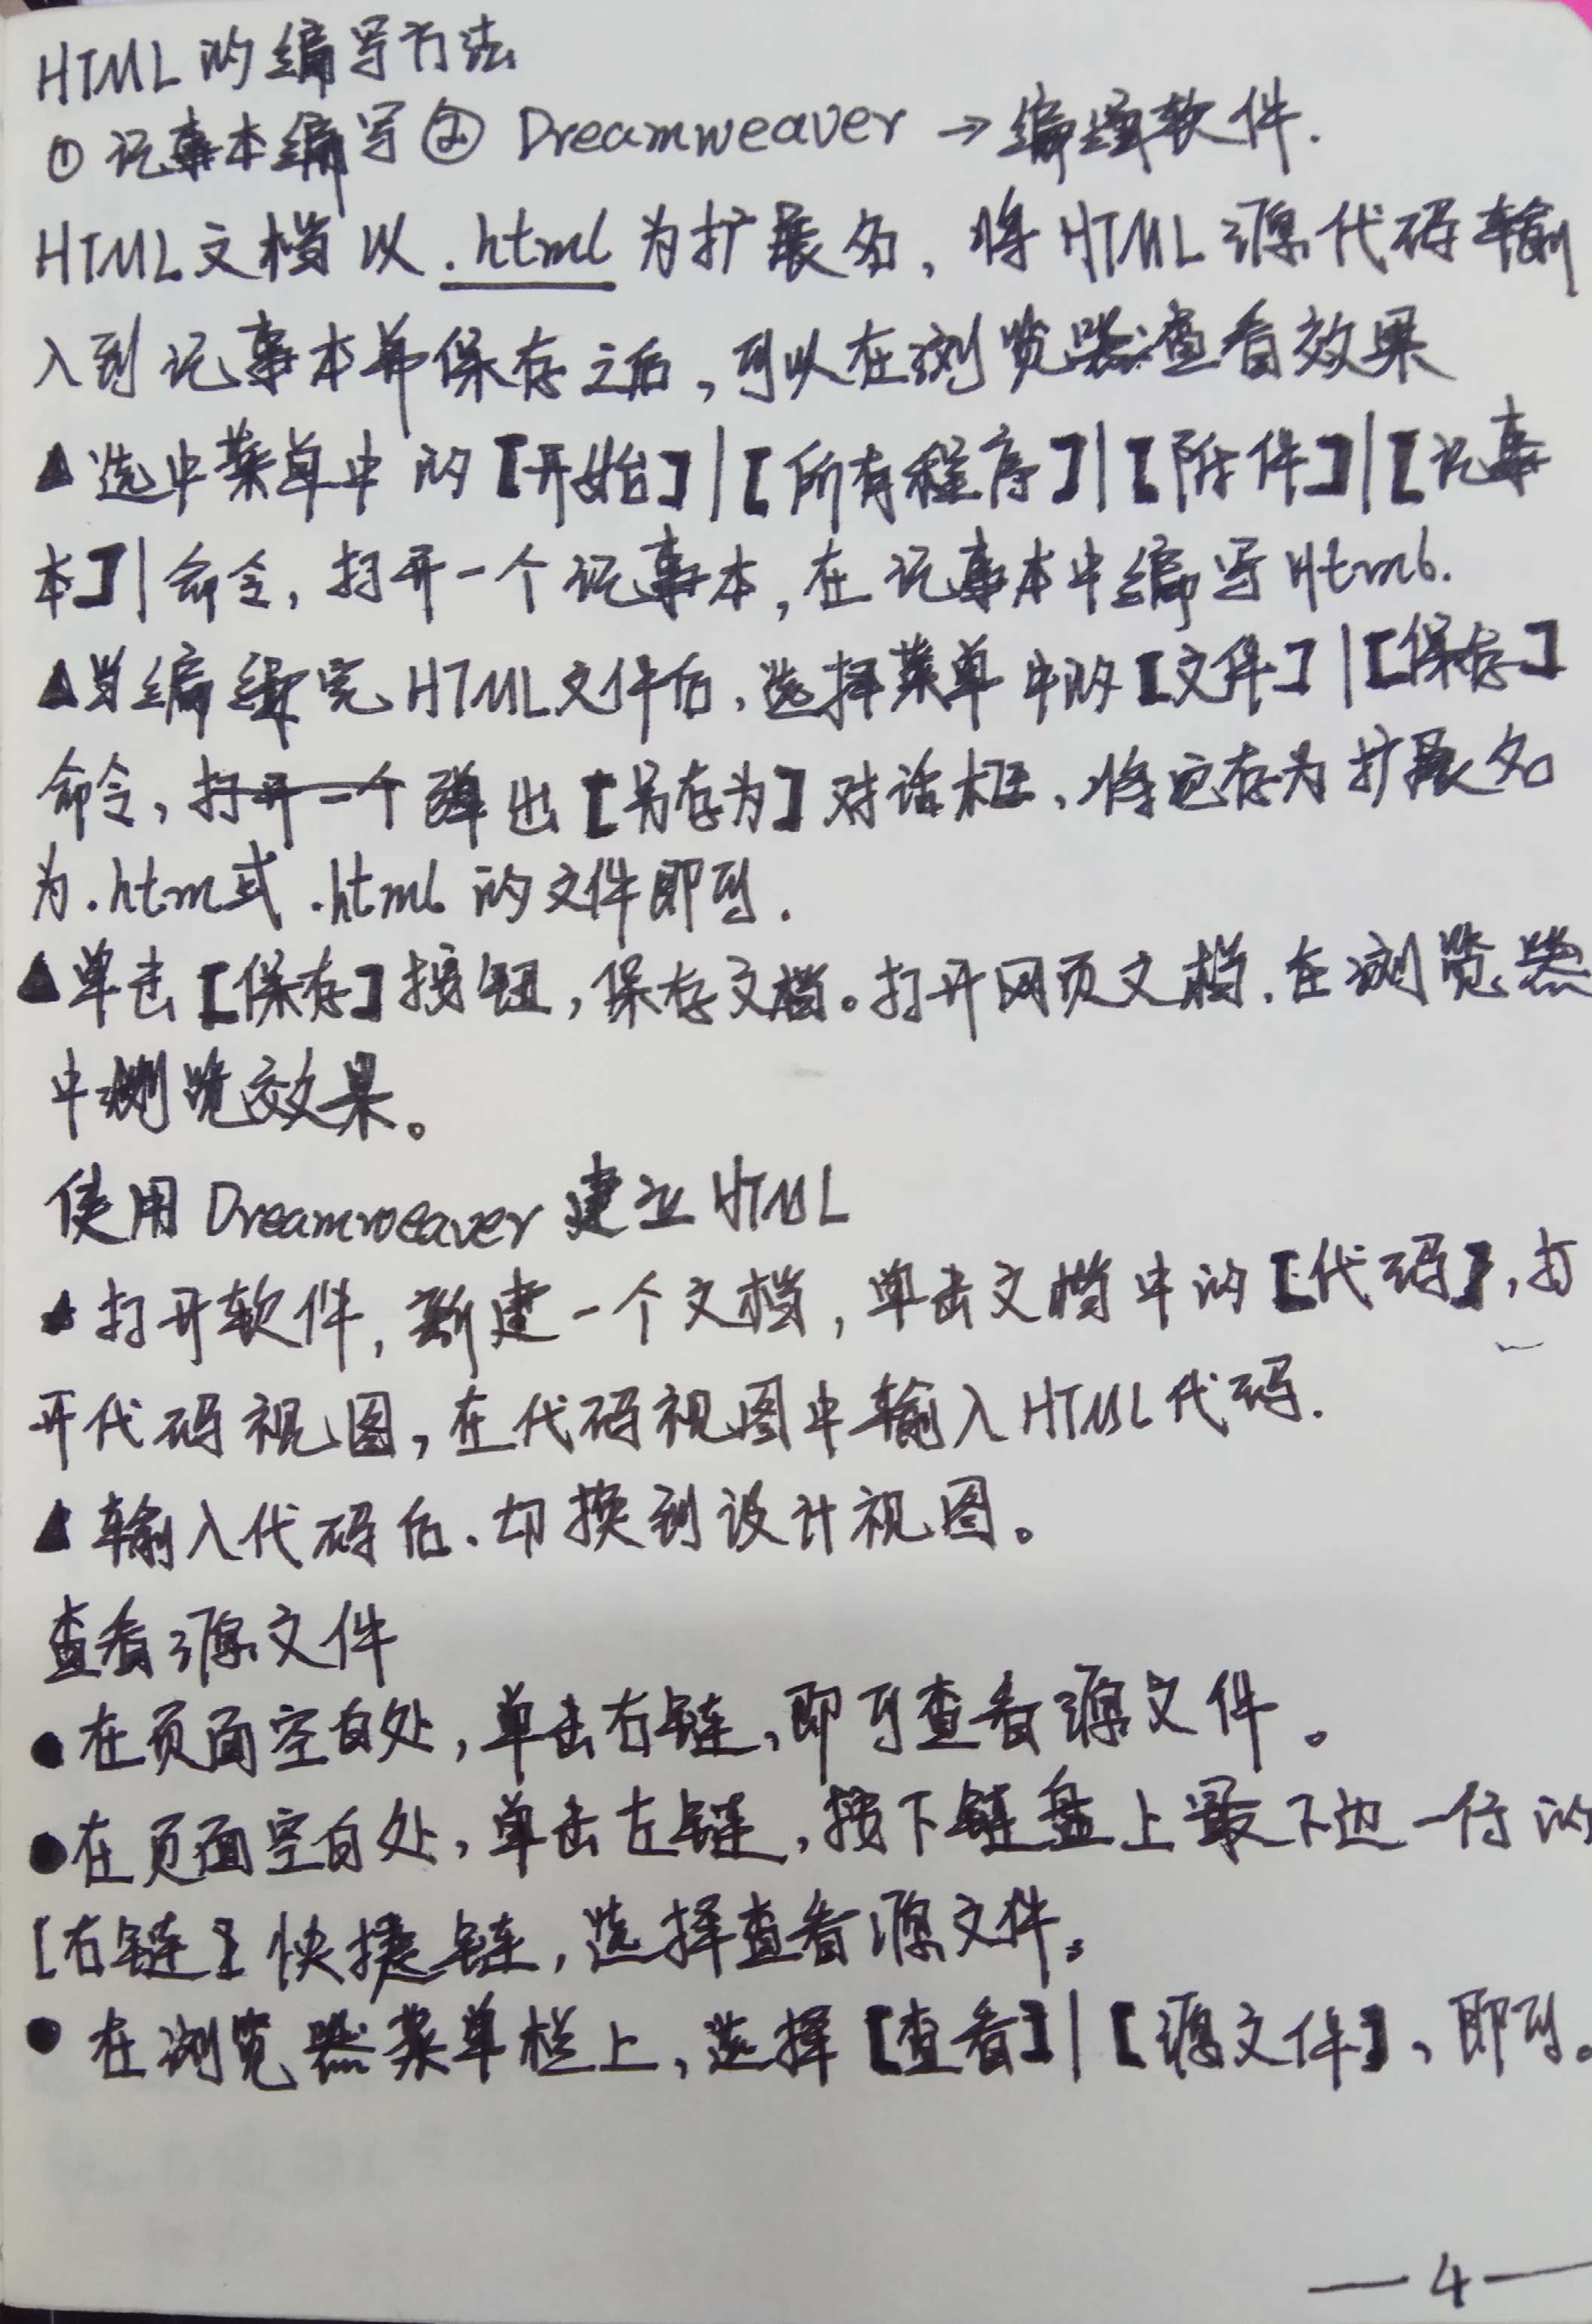 HTML的编写方法
① 记事本编写 ② Dreamweaver →编译软件.
HTML文档以.html为扩展名,将HTML源代码输
入到记事本并保存之后,可以在浏览器查看效果
▲选中菜单中的【开始】|【所有程序】|【附件】|【记事
本】|命令,打开一个记事本,在记事本中编写Html.
▲当编辑完HTML文件后,选择菜单中的【文件】|【保存】
命令,打开一个弹出【另存为】对话框,将它存为扩展名
为.htm或.html的文件即可.
▲单击【保存】按钮,保存文档。打开网页文档,在浏览器
中浏览效果。
使用Dreamweaver建立HTML
▲打开软件,新建一个文档,单击文档中的【代码】,打
开代码视图,在代码视图中输入HTML代码.
▲输入代码后、切换到设计视图。
查看源文件
●在页面空白处,单击右链,即可查看源文件。
●在页面空白处,单击左链,按下链盘上最下边一行的
[右链】快捷链,选择查看源文件。
●在浏览器菜单栏上,选择【查看】|【源文件】、即可。
—4—